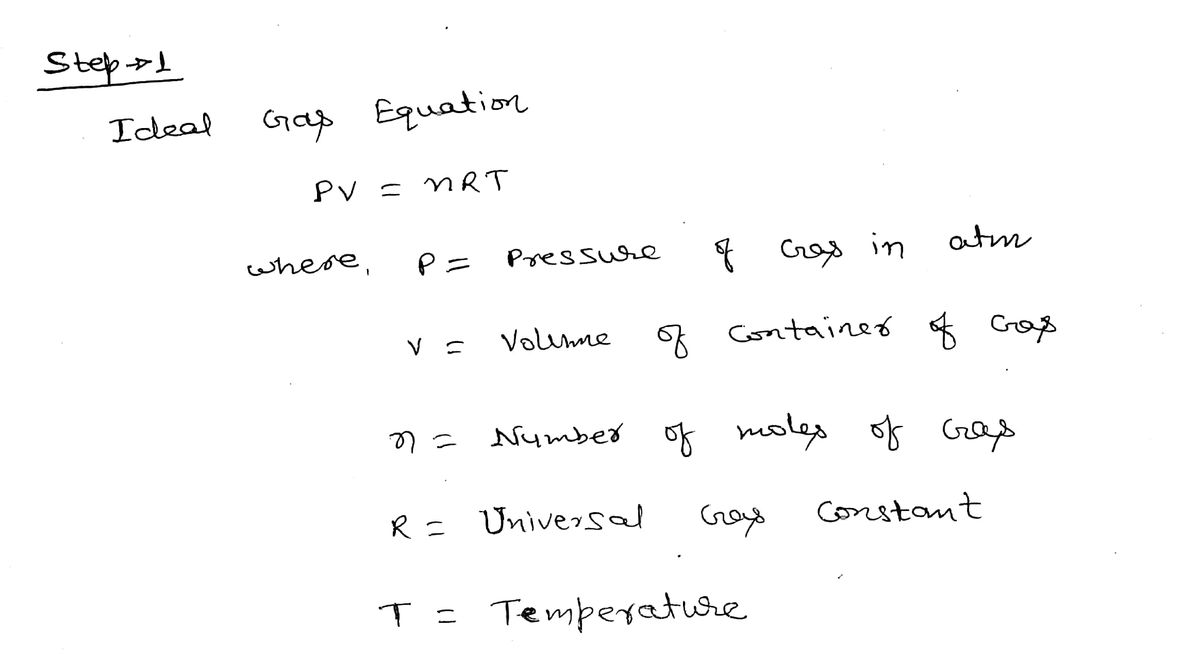 Step → 1
Ideal Gas Equation
PV = nRT
where, P = Pressure of Gas in atm
V = Volume of Container of Gas
n = Number of moles of Gas
R = Universal Gas Constant
T = Temperature